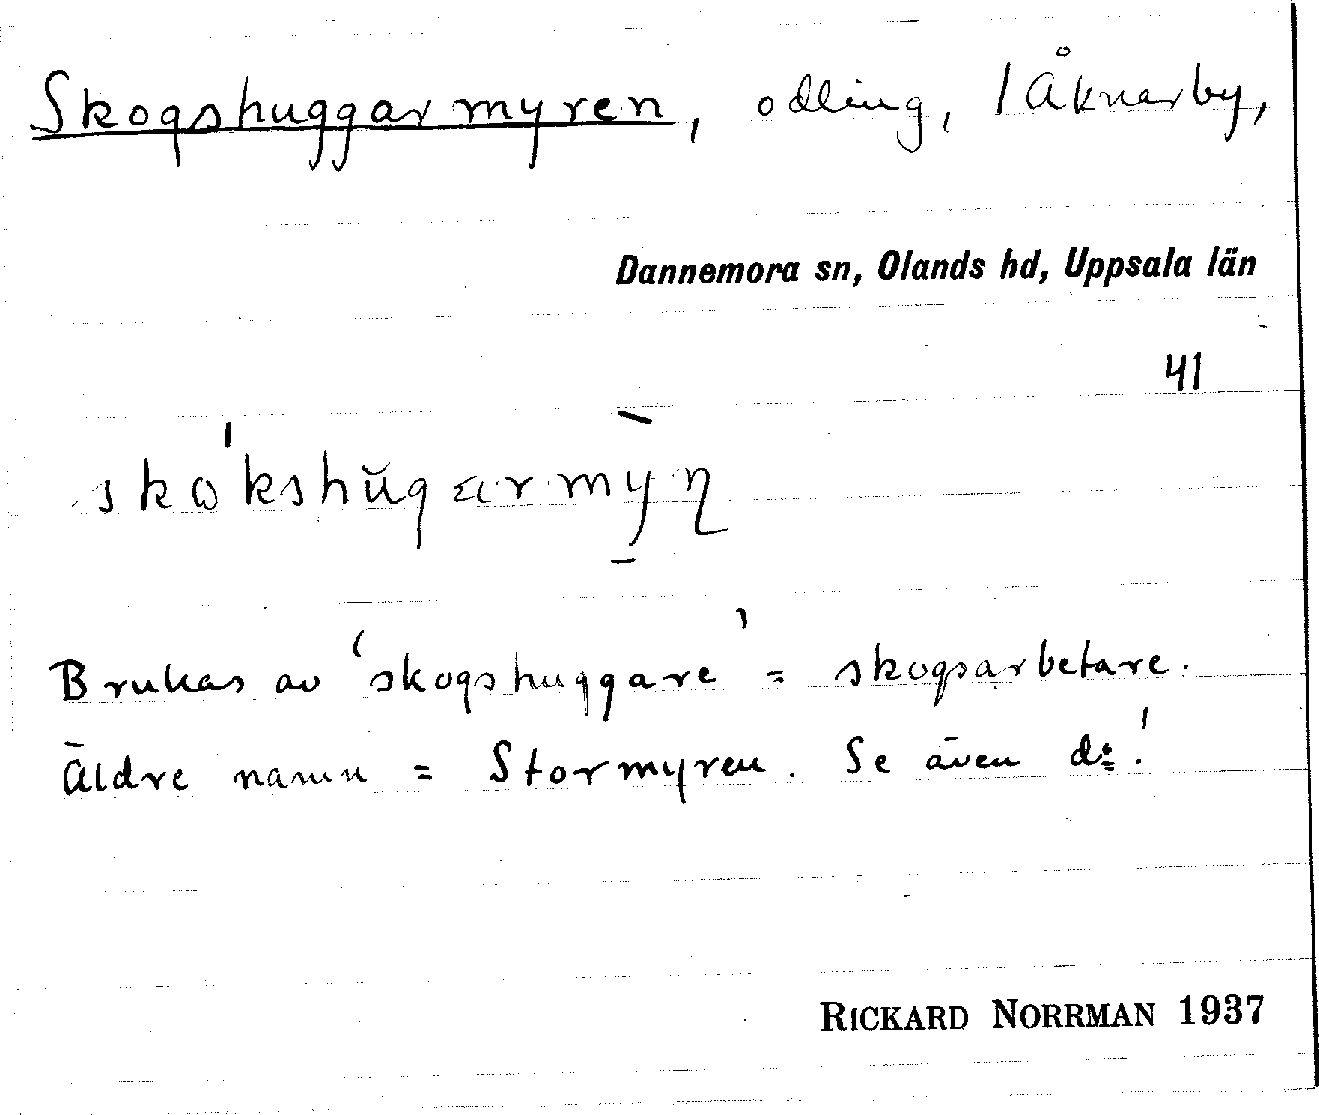 Skogshuggarmyren, odling, 1 Åknarby,
Dannemora sn, Olands hd, Uppsala län
41
Brukas av 'skogshuggare' = skogsarbetare.
Äldre namn = Stormyren. Se även d:o!
RICKARD NORRMAN 1937